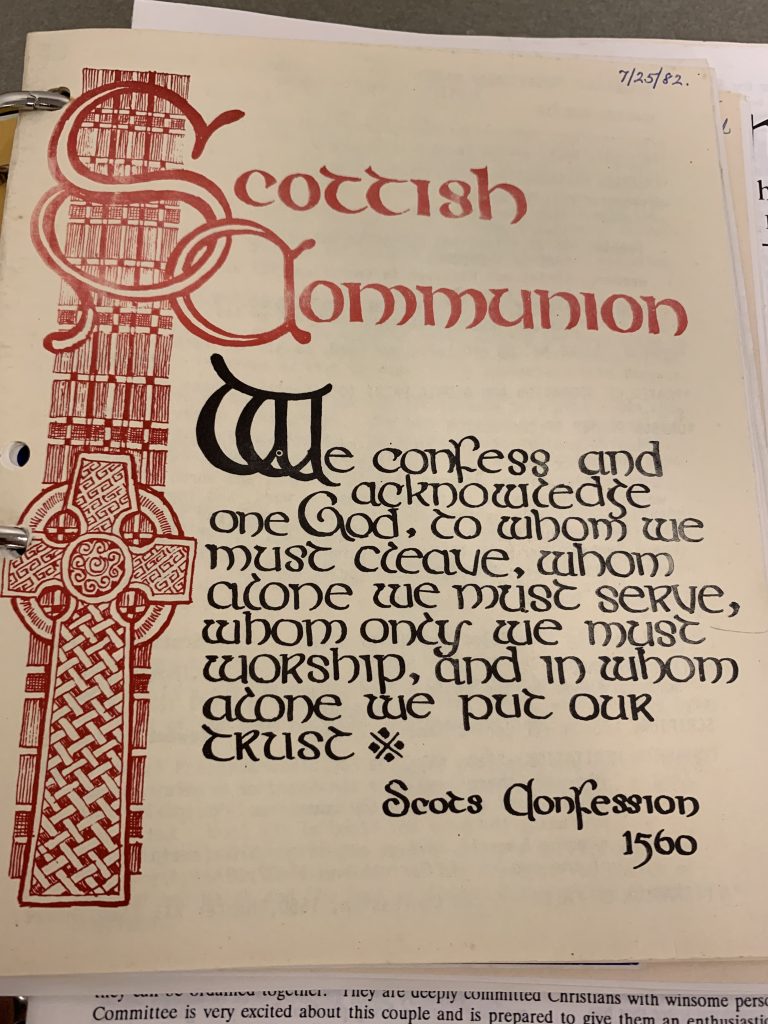 7/25/82.
Scottish
Communion
We confess and
acknowledge
one God, to whom we
must cleave, whom
alone we must serve,
whom only we must
worship, and in whom
alone we put our
trust ※
Scots Confession
1560
they can be ordained together. They are deeply committed Christians with winsome
Committee is very excited about this couple and is prepared to give them an enthusiastic